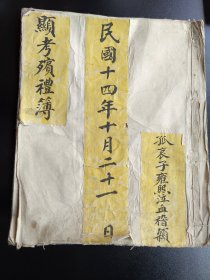 孤哀子雍熙泣血稽顙
民國十四年十月二十一日
顯考殯禮簿